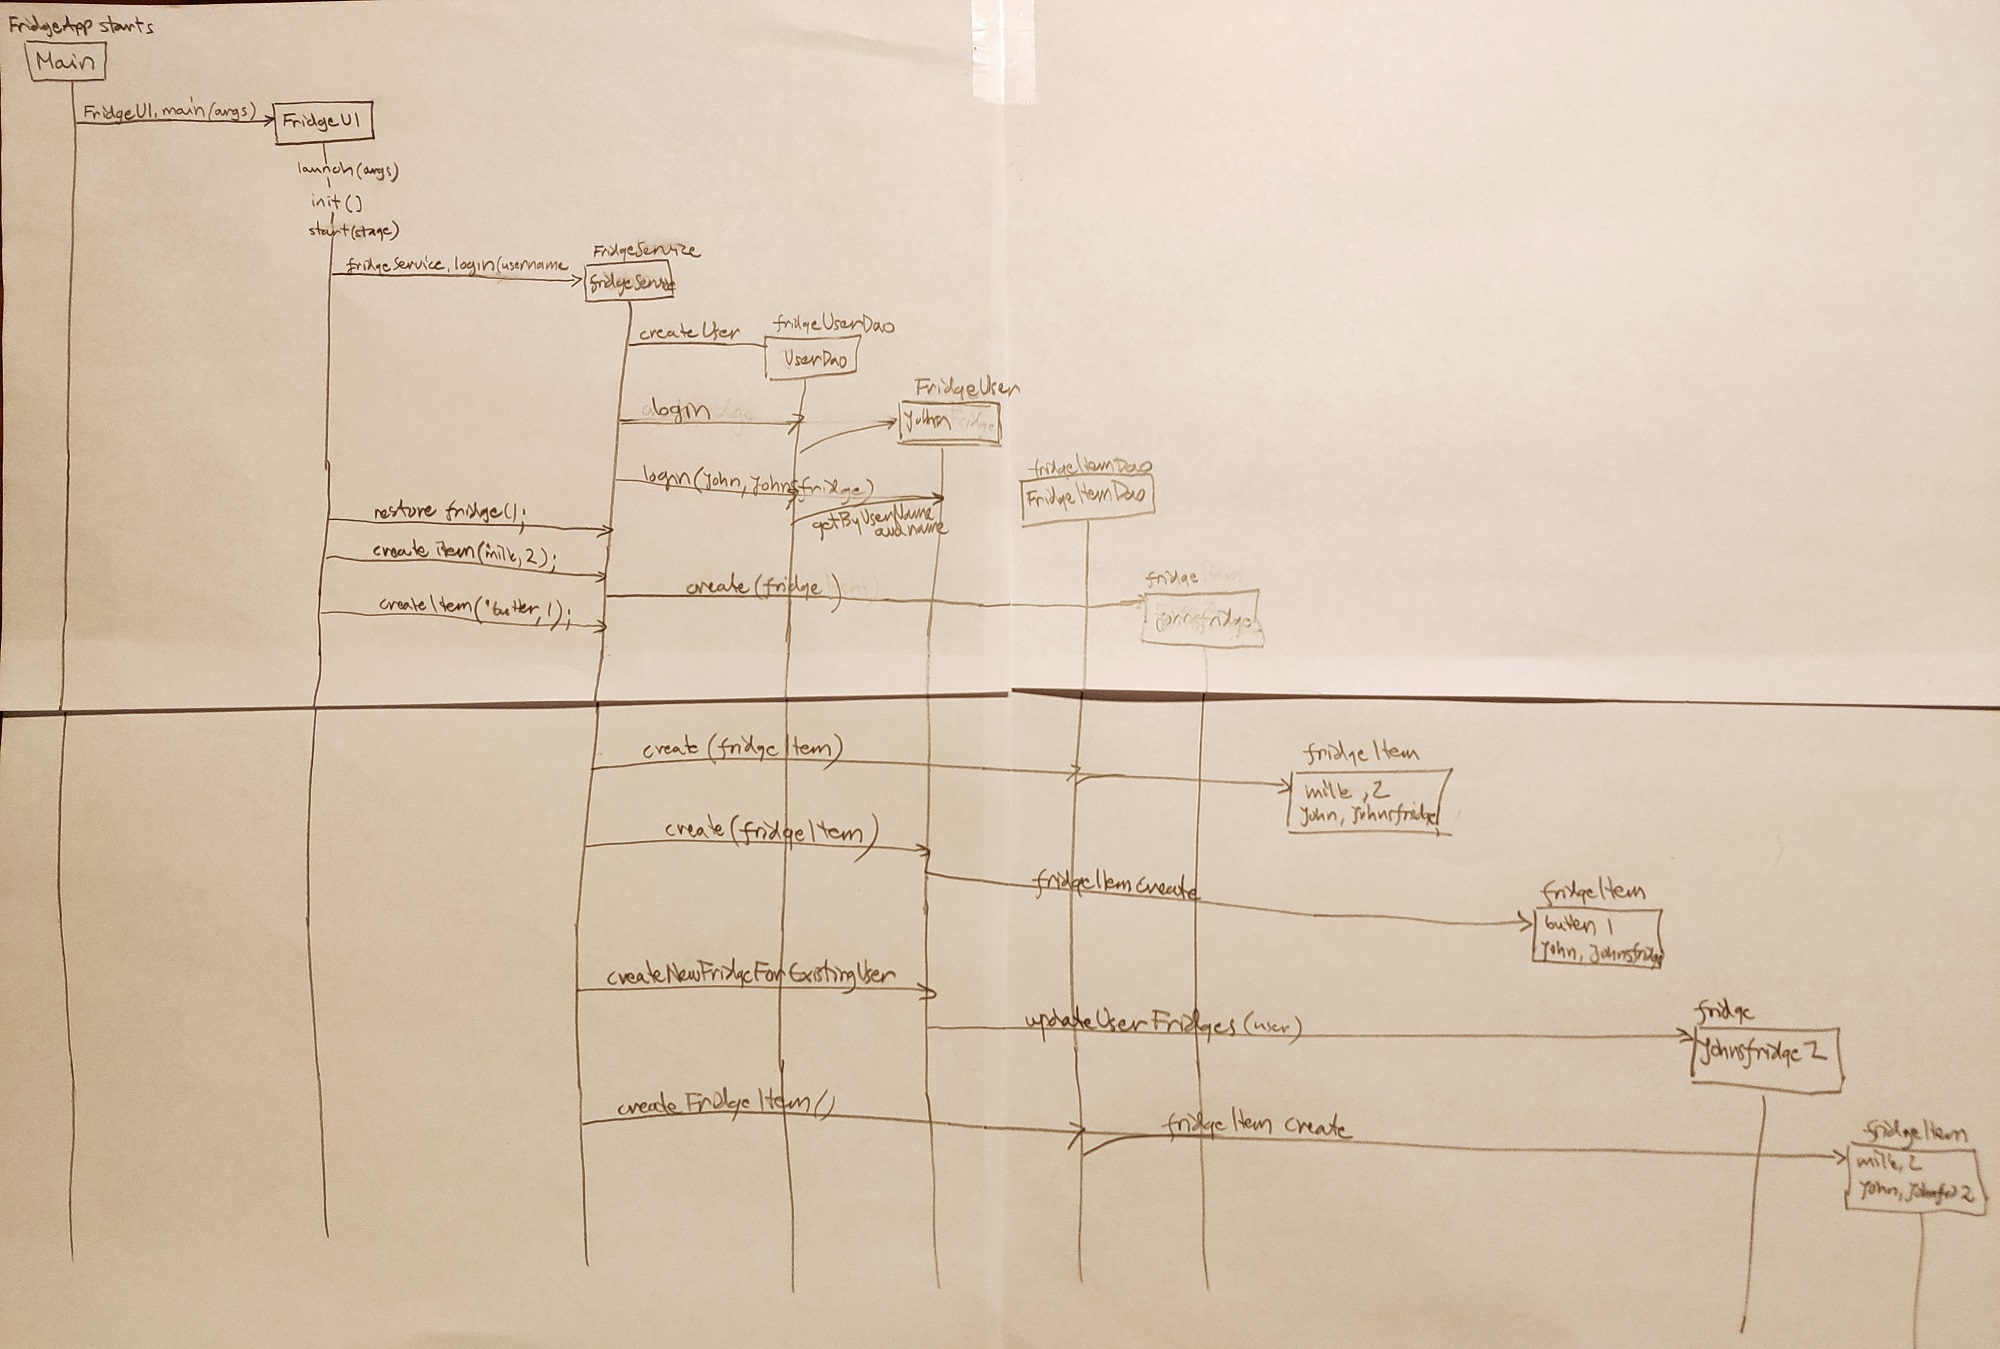 FridgeApp starts
Main
FridgeUI.main(args)
FridgeUI
launch(args)
init()
start(stage)
fridgeService.login(username
FridgeService
fridgeService
createUser
fridgeUserDao
UserDao
login
FridgeUser
John
login(john, johnsfridge)
getByUserName
and name
fridgeItemDao
FridgeItemDao
restore fridge();
create item("milk, 2);
createItem("butter, 1);
create (fridge )
fridge
johnsfridge
create (fridge Item)
fridge Item
milk , 2
john, johnsfridge
create (fridgeItem)
fridgeItem create
fridgeItem
butter 1
john, johnsfridge
createNewFridgeForExistingUser
updateUserFridges (user)
fridge
johnsfridge 2
create FridgeItem()
fridge Item create
fridgeItem
milk, 2
john,